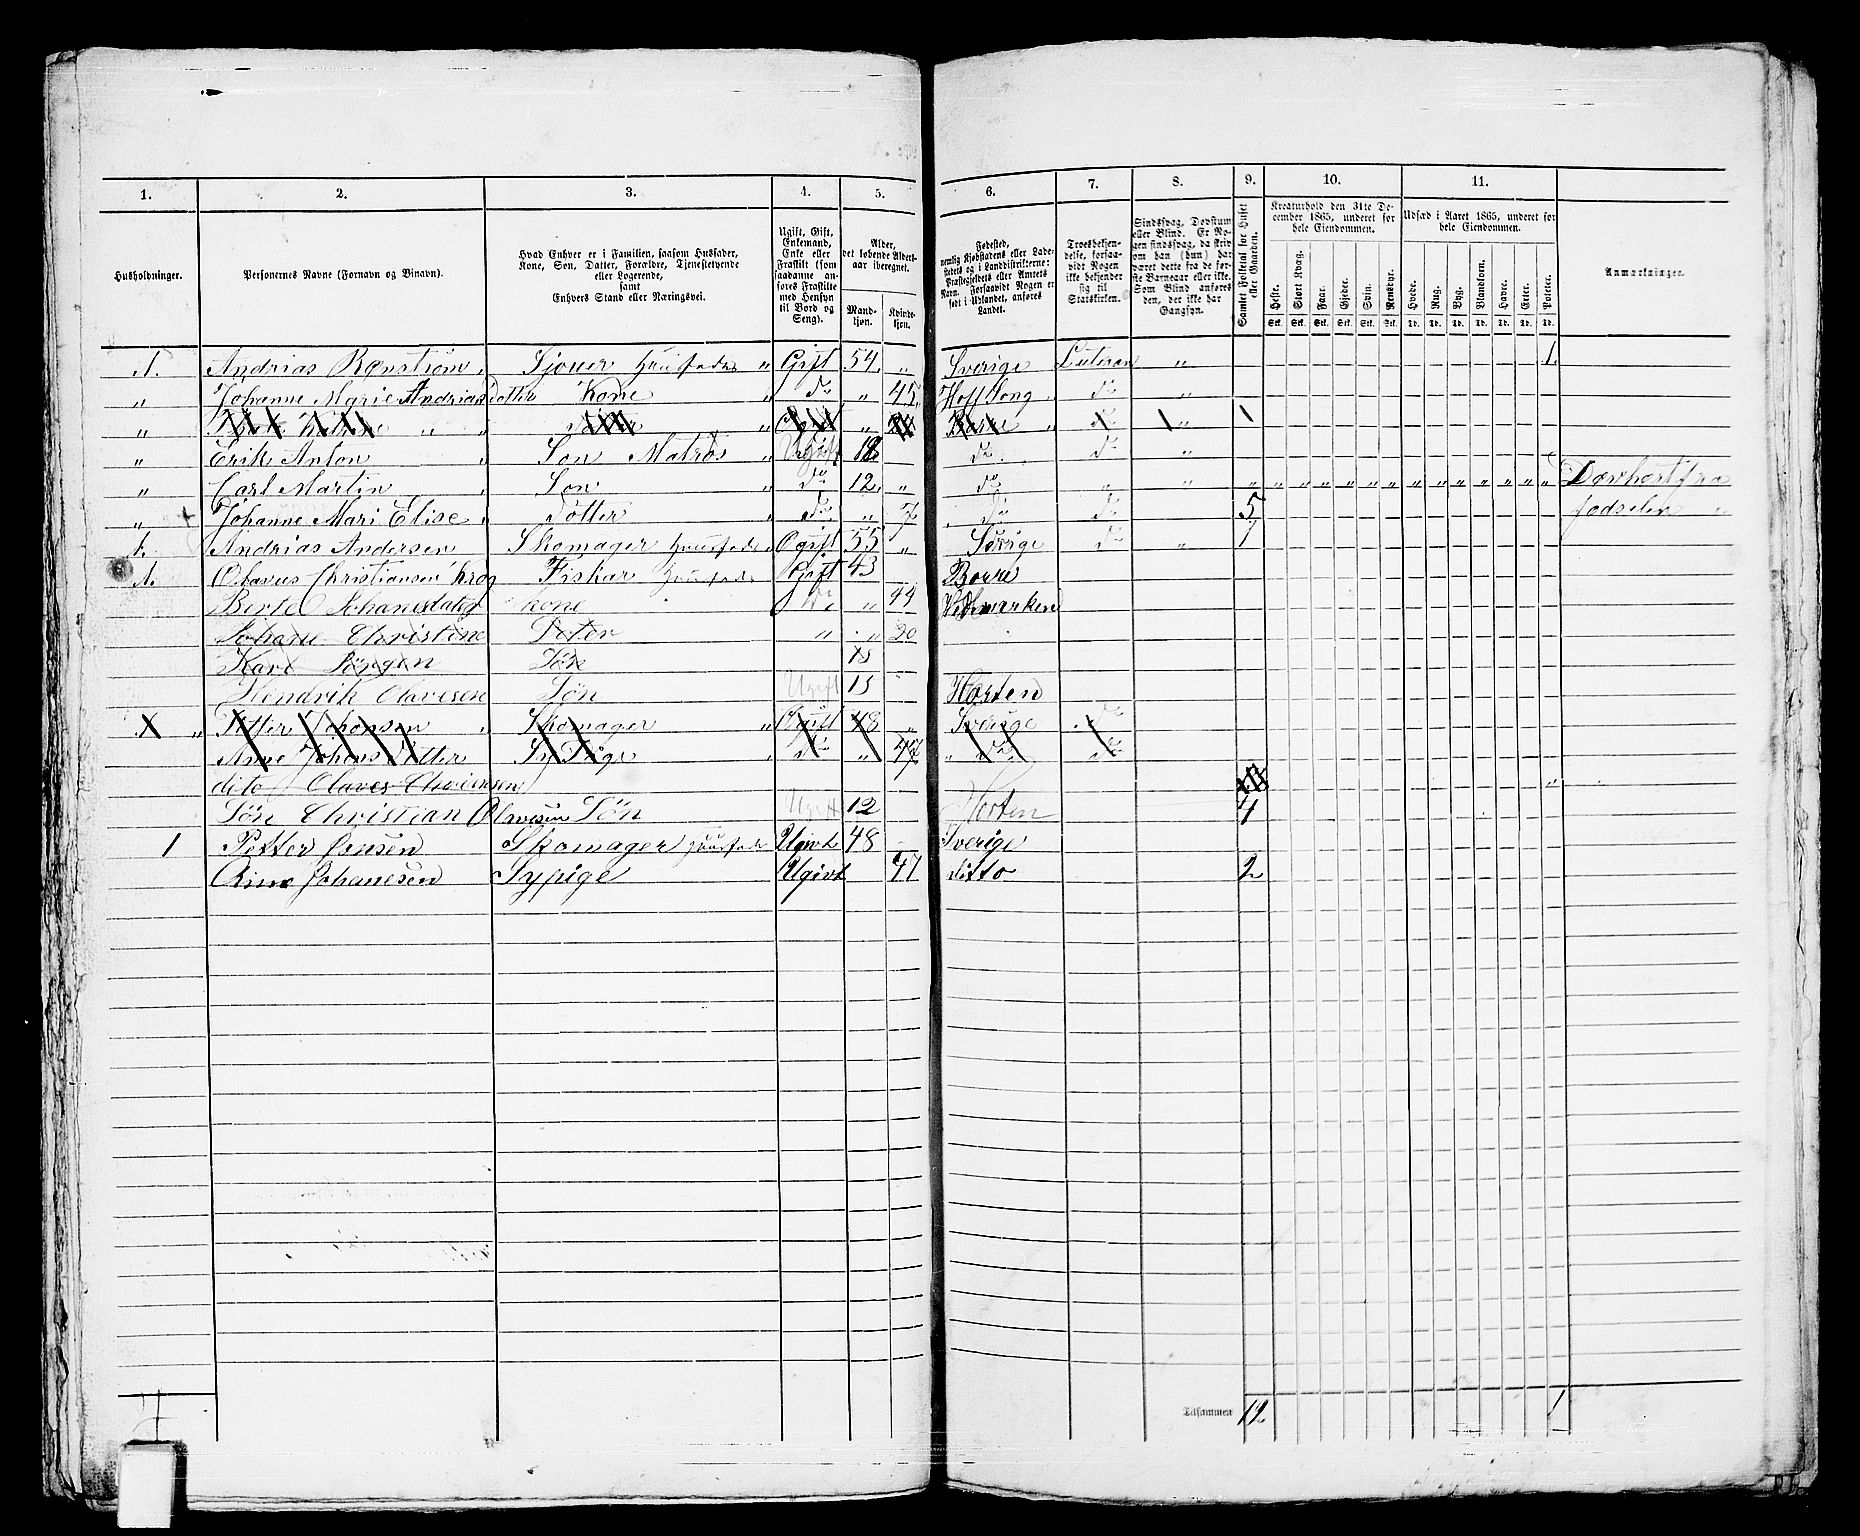 1. 2. 3. 4. 5. 6. 7. 8. 9. 10. 11.
Husholdninger. Personernes Navne (Fornavn og Binavn). Hvad Enhver er i Familien, saasom Husfader, Kone, Søn, Datter, Forældre, Tjenestetyende eller Logerende, samt Enhvers Stand eller Næringsvei. Ugift, Gift, Enkemand, Enke eller Fraskilt (som saadanne anføres Fraskilte med Hensyn til Bord og Seng). Alder, det løbende Aldersaar iberegnet. Mandkjøn. Kvindekjøn. Fødested, nemlig Kjøbstadens eller Ladestedets og i Landdistrikterne: Præstegjeldets eller Amtets Navn. Forsaavidt Nogen er født i Udlandet, anføres Landet. Troesbekjendelse, forsaavidt Nogen ikke bekjender sig til Statskirken. Sindssvag, Døvstum eller Blind. Er Nogen sindssvag, da skrives om han (hun) har været dette fra de første Barneaar eller ikke. Som Blind anføres den, der ikke har Gangsyn. Samlet Folketal for Huset eller Gaarden. Kreaturhold den 31te December 1865, underet for hele Eiendommen. Udsæd i Aaret 1865, underet for hele Eiendommen. Anmærkninger.
Heste. Stort Kvæg. Faar. Gjeder. Svin. Rensdyr. Hvede. Rug. Byg. Blandkorn. Havre. Erter. Poteter.
Stk. Stk. Stk. Stk. Stk. Stk. Td. Td. Td. Td. Td. Td. Td.
1. Andrias Rønstrøm Sjouer Huusfader " Gift 54 " Sverige Luteran " 1.
" Johanne Marie Andrias Dotter Kone " do " 45. Hoff Sogn do "
" " " " do " 1
" Erik Anton " Søn Matros " Ugift 18 do do "
" Carl Martin " Søn " do 12. " do " " " " " " " " " " " " " " " " " Døvhørt fra
" Johanne Mari Elise " Dotter " do " 7 " do do 5 fødselen "
1. Andrias Andersen Skomager Huusfader Ogift 55 " Sverige do " 1
1. Olavus Christiansen Krog Fisker Huusfader Gift 43 Borre
Berte Johanesdater kone do " 44 Hedmarken
Christine " " 20
Søn 18
Hendrik Olavesen Søn Ugift 15 Horten
X " Petter Johansen " Skomager " Ogift 48 " Sverige do
Anne Johans Dotter Sy Pige do " 47 " do do
dito Olaves Christensen "
Søn Christian Olavesen Søn Ugift 12 Horten 4
1 Petter Skomager Huusfader Ugivt 48 Sverige
Johanesen Sypige Ugivt 47 ditto 2
4 Tilsammen 12. 1